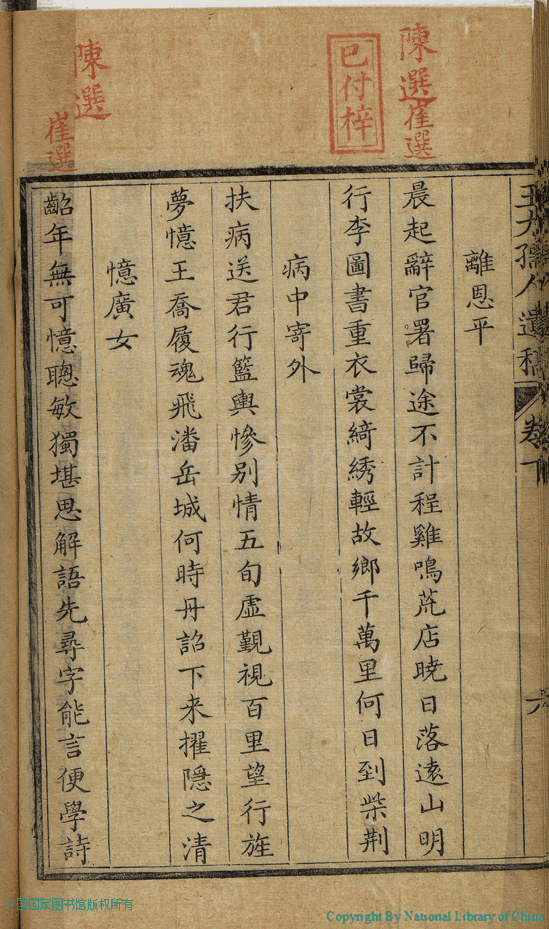 王太孺人遺稿 卷下 六
陳選
崔選
已付梓
離恩平
晨起辭官署歸途不計程雞鳴茆店曉日落遠山明
行李圖書重衣裳綺綉輕故鄉千萬里何日到柴荆
病中寄外
扶病送君行籃輿慘别情五旬虛覲視百里望行旌
夢憶王喬履魂飛潘岳城何時丹詔下来擢隱之清
陳選
崔選
憶廣女
齠年無可憶聰敏獨堪思解語先尋字能言便學詩
国国家图书馆版权所有
Copyright By National Library of China